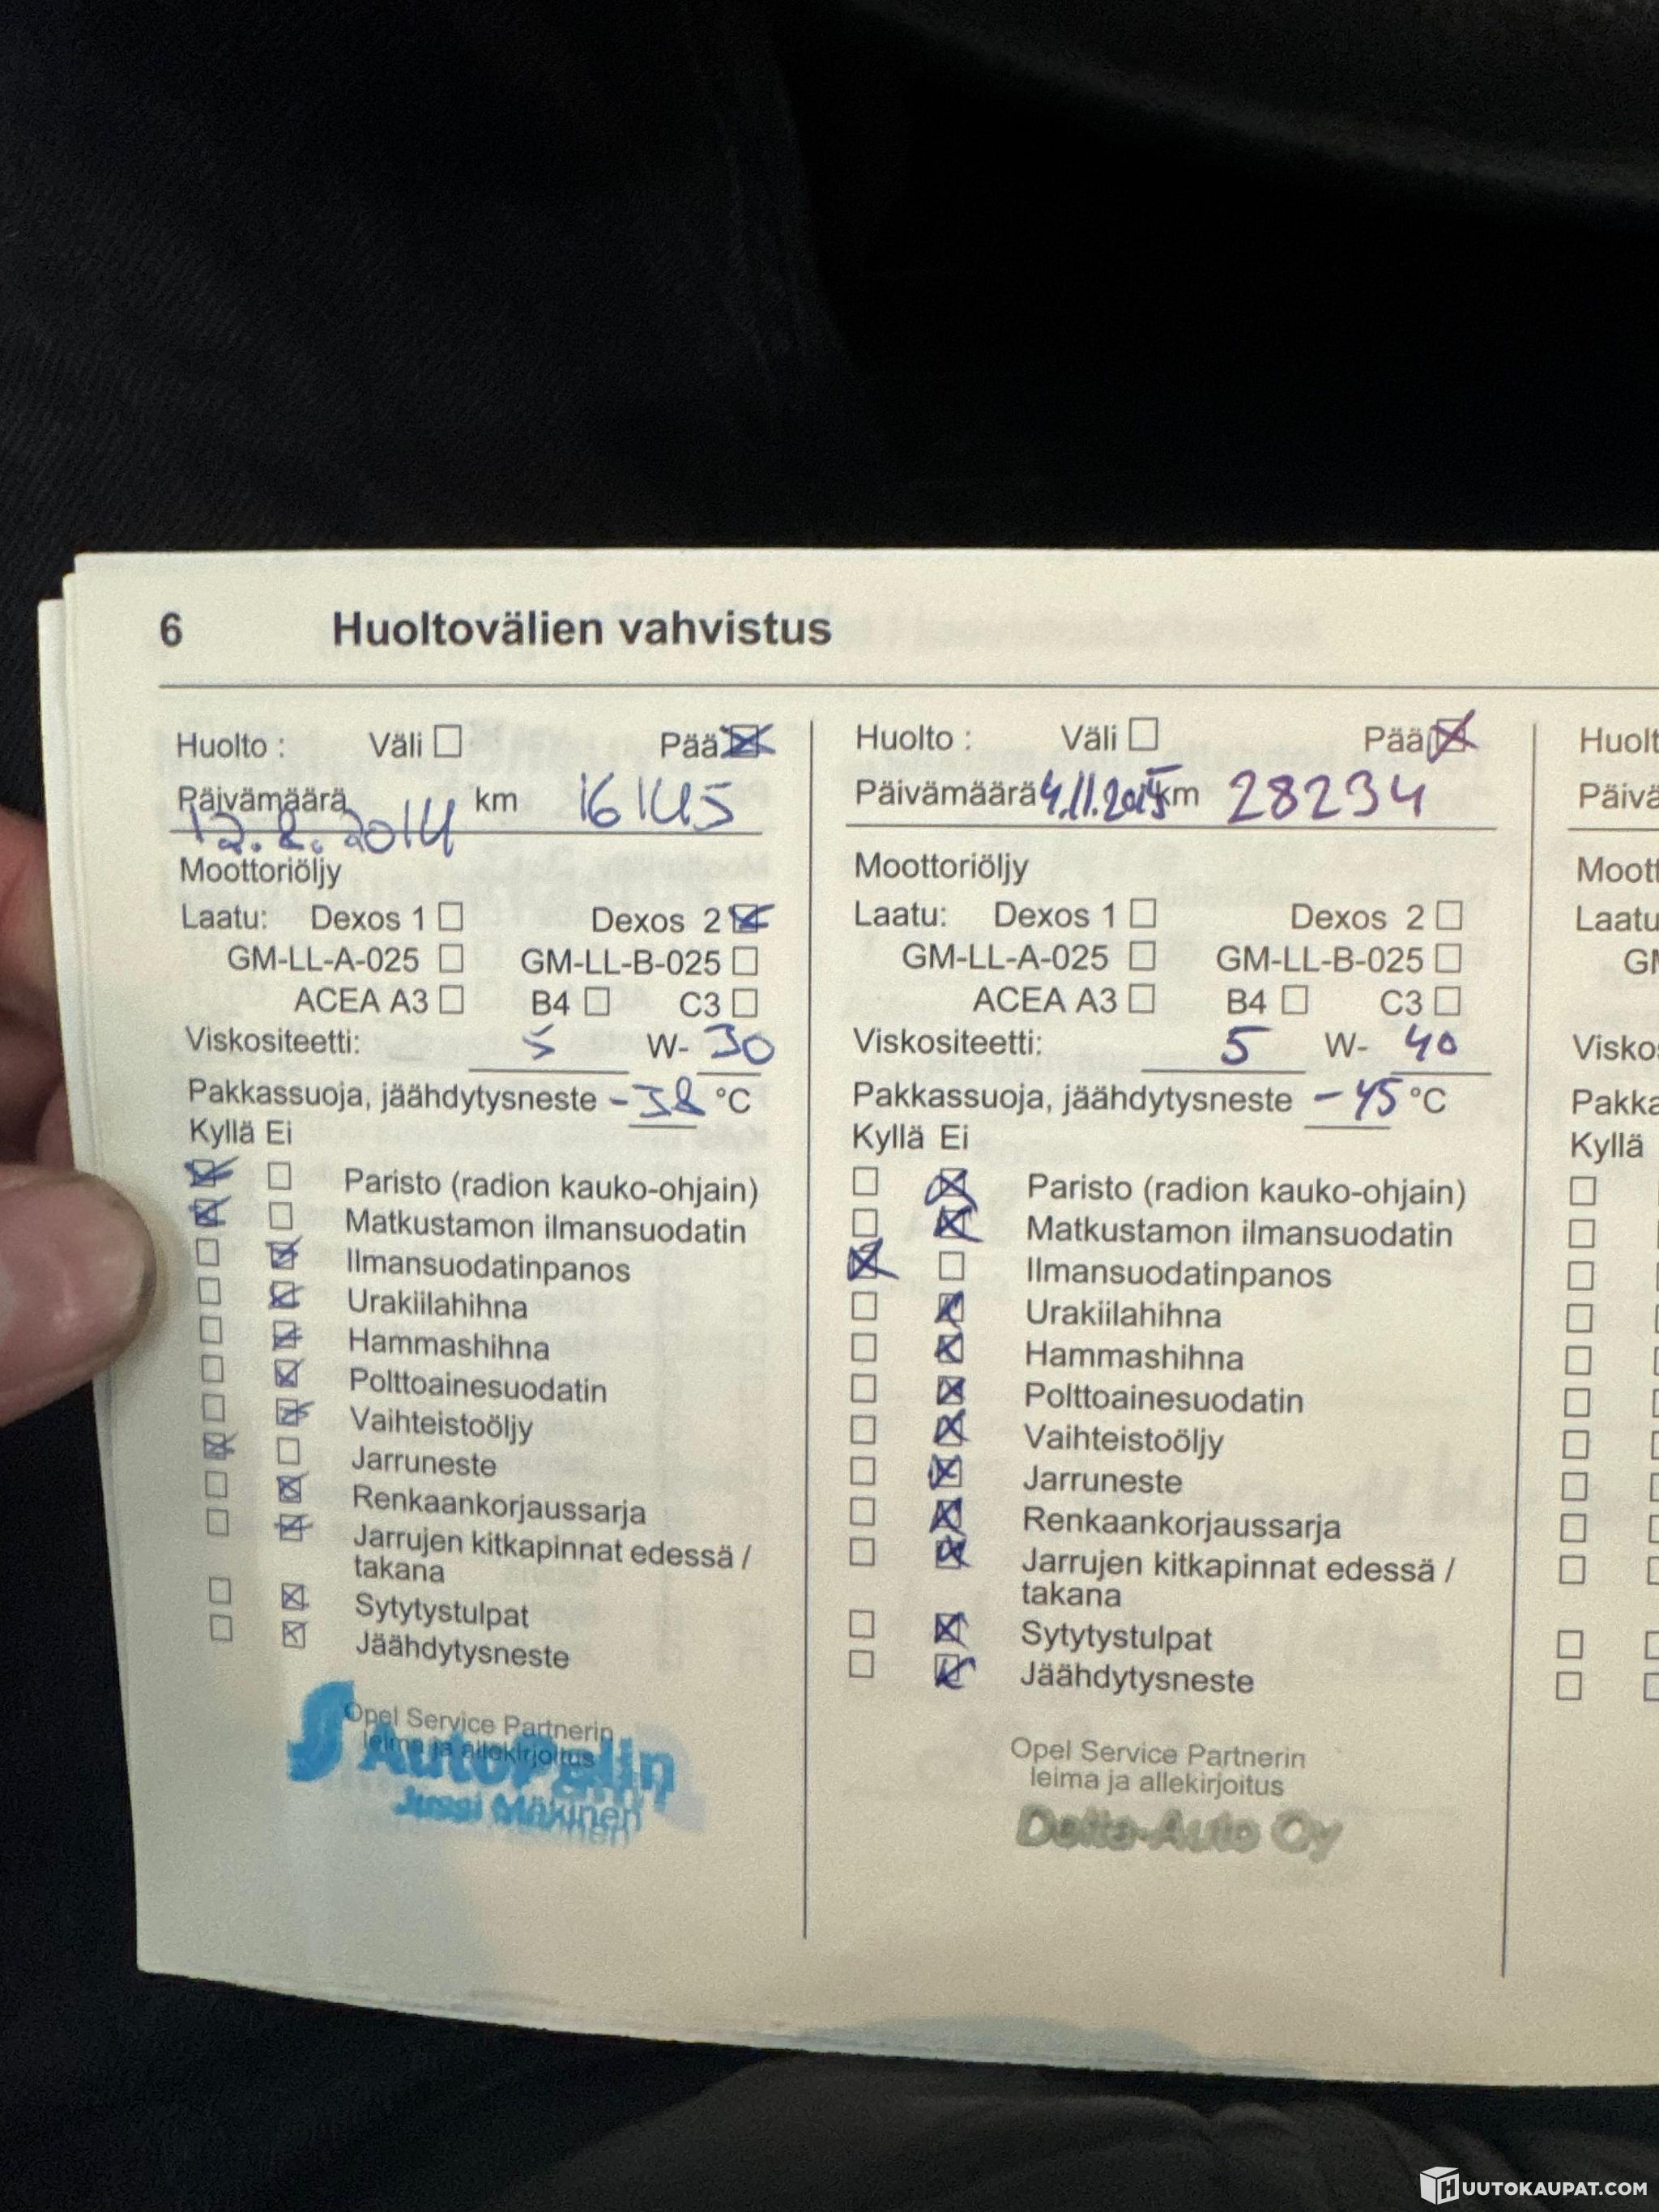 6 Huoltovälien vahvistus
Huolto : Väli Pää
Päivämäärä 12.8.2014 km 16145
Moottoriöljy
Laatu: Dexos 1 Dexos 2
GM-LL-A-025 GM-LL-B-025
ACEA A3 B4 C3
Viskositeetti: 5 W- 30
Pakkassuoja, jäähdytysneste -38 °C
Kyllä Ei
Paristo (radion kauko-ohjain)
Matkustamon ilmansuodatin
Ilmansuodatinpanos
Urakiilahihna
Hammashihna
Polttoainesuodatin
Vaihteistoöljy
Jarruneste
Renkaankorjaussarja
Jarrujen kitkapinnat edessä /
takana
Sytytystulpat
Jäähdytysneste
Opel Service Partnerin
leima ja allekirjoitus
AutoPalin
Jussi Mäkinen
Huolto : Väli Pää
Päivämäärä 4.11.2015 km 28234
Moottoriöljy
Laatu: Dexos 1 Dexos 2
GM-LL-A-025 GM-LL-B-025
ACEA A3 B4 C3
Viskositeetti: 5 W- 40
Pakkassuoja, jäähdytysneste -45 °C
Kyllä Ei
Paristo (radion kauko-ohjain)
Matkustamon ilmansuodatin
Ilmansuodatinpanos
Urakiilahihna
Hammashihna
Polttoainesuodatin
Vaihteistoöljy
Jarruneste
Renkaankorjaussarja
Jarrujen kitkapinnat edessä /
takana
Sytytystulpat
Jäähdytysneste
Opel Service Partnerin
leima ja allekirjoitus
Delta-Auto Oy
Huolt
Päivä
Moott
Laatu
GM
Visko
Pakka
Kyllä
HUUTOKAUPAT.COM